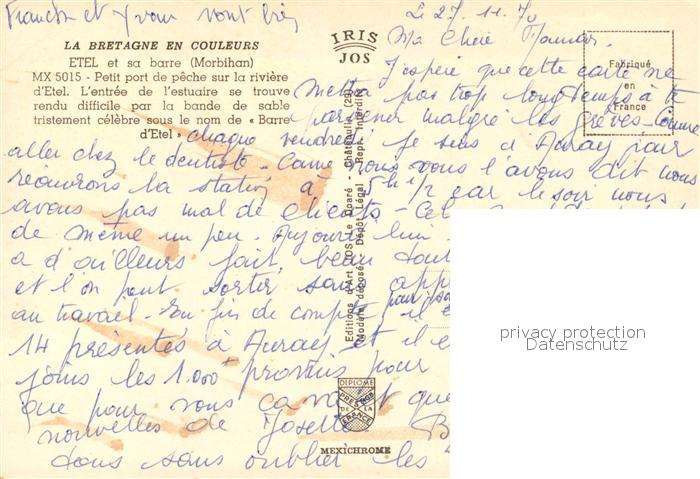 Francth et Yvon vont bien
Le 27.11.70
LA BRETAGNE EN COULEURS
ETEL et sa barre (Morbihan)
MX 5015 - Petit port de pêche sur la rivière
d'Etel. L'entrée de l'estuaire se trouve
rendu difficile par la bande de sable
tristement célèbre sous le nom de « Barre
d'Etel »
IRIS
JOS
Fabriqué
en
France
Ma Chère Maman.
J'espère que cette carte ne
mettra pas trop longtemps à te
parvenir malgré les grèves. Comme
chaque vendredi je suis à Auray pour
aller chez le dentiste. Comme nous vous l'avons dit nous
rouvrons la station à 5h 1/2 car le soir nous
avons pas mal de clients - Cel
de même un peu. Aujourd'hui
a d'ailleurs fait beau tout
et l'on peut sortir sans
au travail. En fin de compte il
14 présentés à Auray et il
joins les 1.000 promis pour
que pour vous ça va et que
nouvelles de Josette B
dous sans oublier les
Editions d'Art JOS Le Doaré - Châteaulin (29)
Modèle déposé Dépôt Légal Rept. Interdite
DIPLOME
PRESTIGE
DE LA
FRANCE
MEXICHROME
privacy protection
Datenschutz